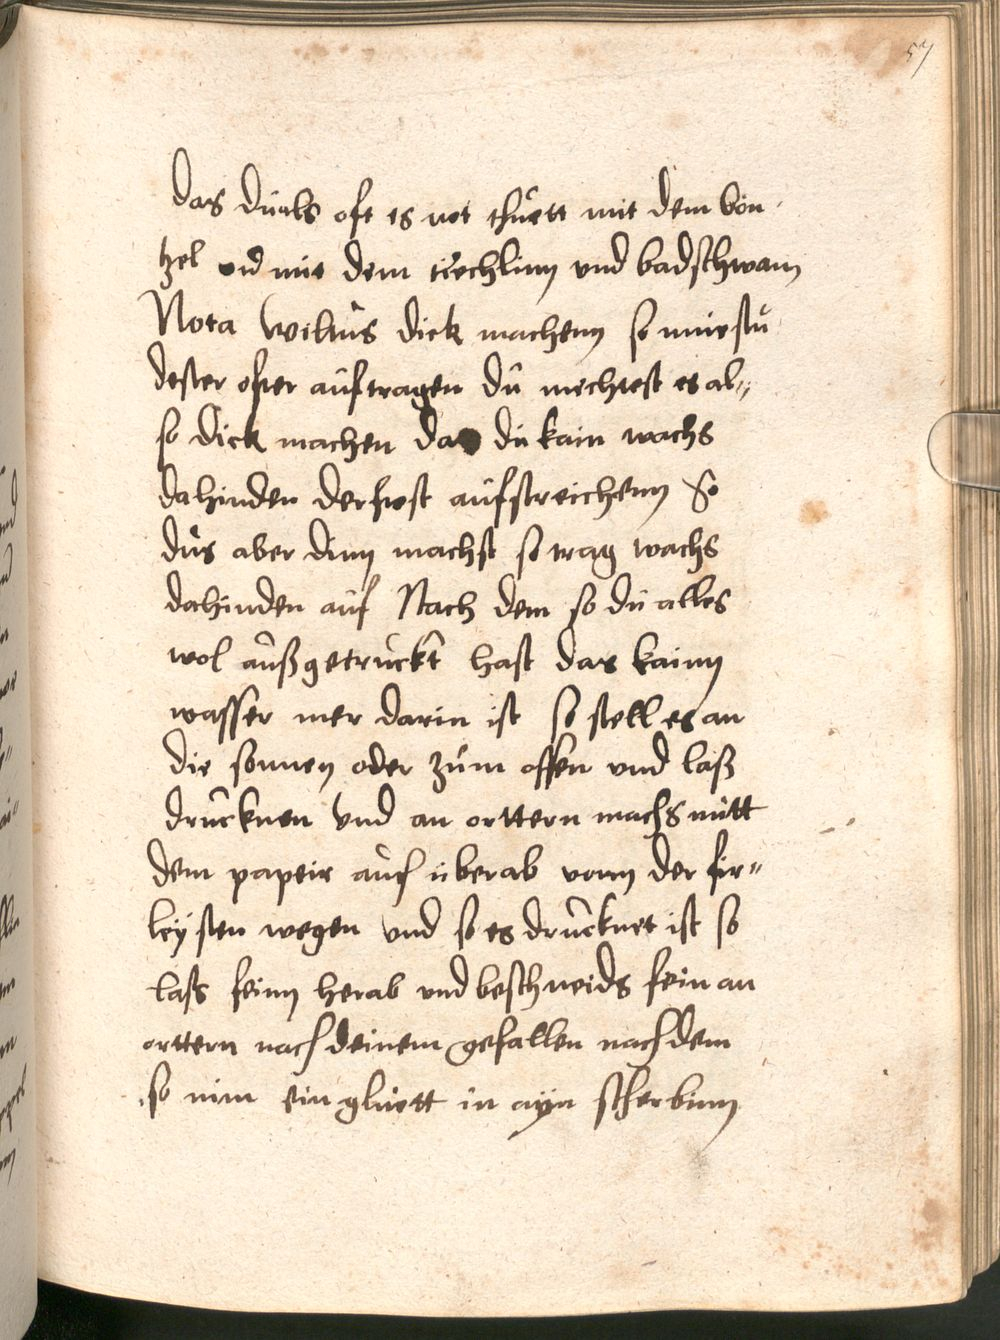 57
das duchs oft es not thuett mit dem bon
tzel und mit dem tiechlinn und badschwam
Nota wiltus dick machenn so muestu
dester ofter auftragen du mechtest es al„
so dick machen das du kain wachs
dahinden derfest aufstreichenn So
dus aber dinn machst so trag wachs
dahinden auf Nach dem so du alles
wol außgetruckt hast das kainn
wasser mer darin ist so stell es an
die sonnen oder zum offen und laß
drucknen und an orttern machs mitt
dem papeir auch uberab vonn der fir„
leysten wegen und so es drucknet ist so
lass feinn herab und beschneids fein an
orttern nach deinem gefallen nach dem
so nim ein gluett in ayn scherbinn